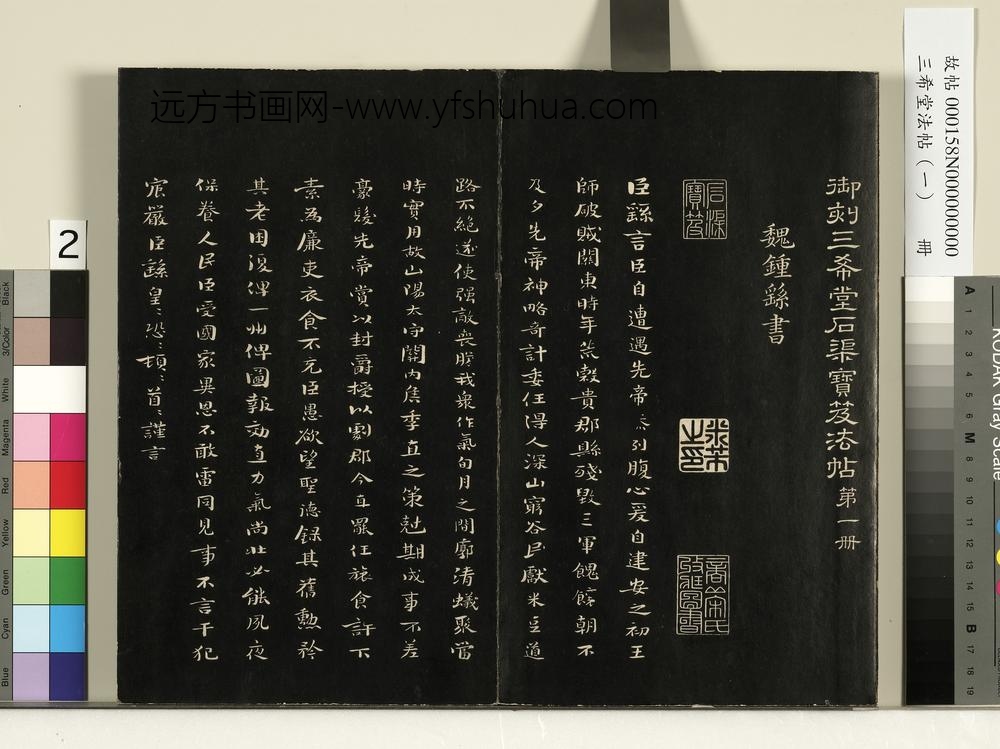 远方书画网-www.yfshuhua.com
故帖 000158N000000000
三希堂法帖（一） 冊
御刻三希堂石渠寶笈法帖第一册
魏鍾繇書
石渠寶笈
米芾之印
臣繇言臣自遭遇先帝忝列腹心爰自建安之初王
師破賊關東時年荒穀貴郡縣殘毀三軍餽饟朝不
及夕先帝神略奇計委任得人深山窮谷民獻米豆道
路不絕遂使强敵喪膽我衆作氣旬月之間廓清蟻聚當
時實用故山陽太守關內侯季直之策尅期成事不差
豪髮先帝賞以封爵授以劇郡今直罷任旅食許下
素爲廉吏衣食不充臣愚欲望聖德錄其舊勳矜
其老困復俾一州俾圖報効直力氣尚壯必能夙夜
保養人民臣受國家異恩不敢雷同見事不言干犯
宸嚴臣繇皇皇恐恐頓頓首首謹言
2
Black
3/Color
White
Magenta
Red
Yellow
Green
Cyan
Blue
KODAK Gray Scale
A 1 2 3 4 5 6 M 8 9 10 11 12 13 14 15 B 17 18 19